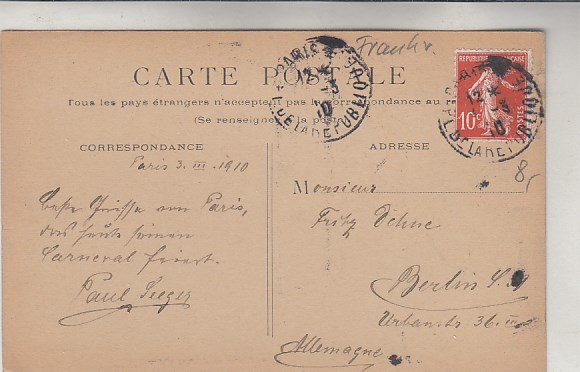 Frankr.
CARTE POSTALE
Tous les pays étrangers n'acceptent pas la correspondance au
(Se renseigner à la poste)
CORRESPONDANCE
Paris 3. III. 1910
beste Grüsse aus Paris,
das heute seinen
Carneval feiert.
Paul Seeger
ADRESSE
Monsieur
Fritz Dehne
Berlin S.
Urbanstr 36 III
Allemagne
8,
REPUBLIQUE FRANÇAISE
10c
POSTES
PARIS
12 *
3 -3
10
R. DE LA REPUBLIQUE
12 *
3
10